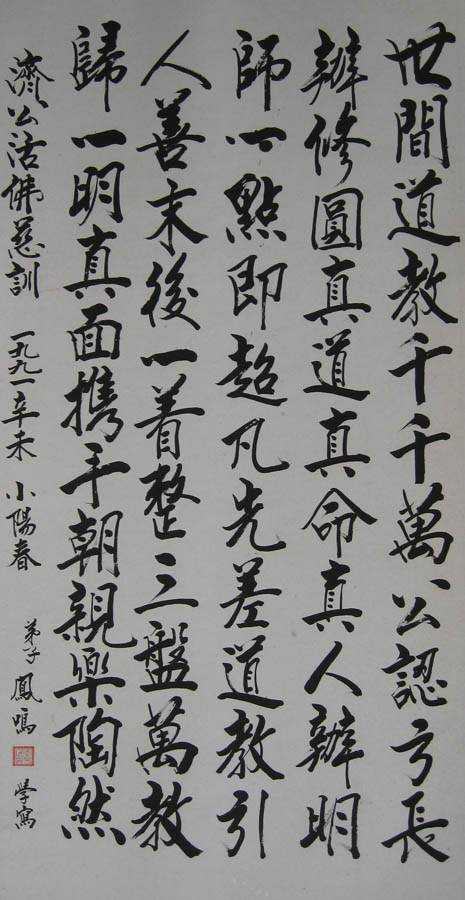 世間道教千千萬公認方長
辦修圓真道真命真人辦明
師一點即超凡先差道教引
人善末後一着整三盤萬教
歸一明真面携手朝親樂陶然
濟公活佛慈訓 一九九一辛未 小陽春 弟子 鳳鳴 學寫